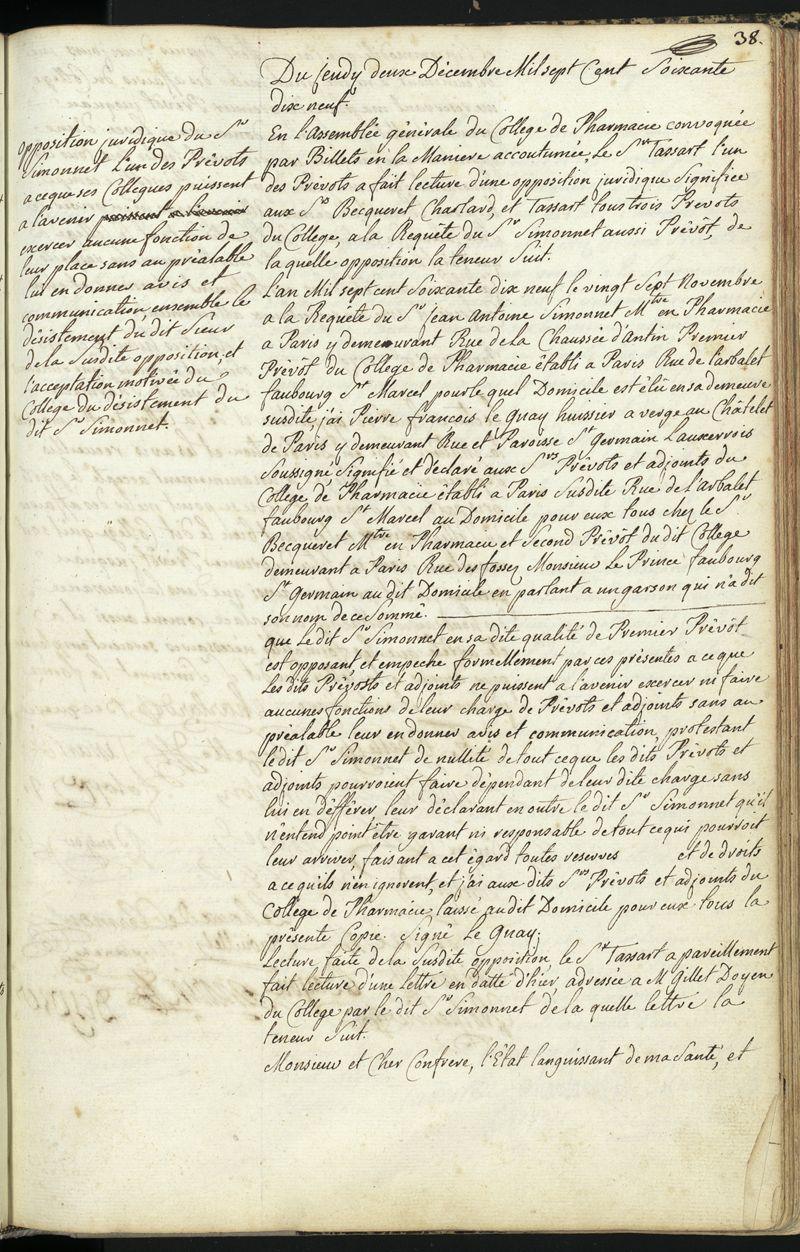 38.
Du jeudy deux Décembre Mil sept Cent Soixante
dix neuf.
opposition juridique du Sr
Simonnet L'un des Prévots
a ce que ses Collegues puissent
a l'avenir puissent a l'avenir
exercer aucune fonction de
leur place sans au préalable
lui en donner avis et
communication ensemble le
désistement du dit Sieur
de la Susdite opposition, et
l'acceptation motivée du
College du désistement du
dit Sr Simonnet.
En l'Assemblée générale du College de Pharmacie convoquée
par Billets en la Maniere accoutumée Le Sr Tassart l'un
des Prévots a fait lecture d'une opposition juridique Signifiée
aux Srs Becqueret Charlard, et Tassart tous trois Prevots
du College, a la Requête du Sr Simonnet aussi Prévôt, de
la quelle opposition la teneur Suit.
L'an Mil sept cent Soixante dix neuf le vingt Sept Novembre
a la Requête du Sr jean Antoine Simonnet Mtre en Pharmacie
a Paris y demeurant Rue de la Chaussée d'Antin Premier
Prévôt du College de Pharmacie établi a Paris Rue de l'arbalet
faubourg St Marcel pour le quel Domicile est élû en sa demeure
susdite, j'ai Pierre françois le Quay huissier a verge au Châtelet
de Paris y demeurant Rue et Paroisse St germain Lauxerrois
Soussigné Signifié et déclaré aux Srs Prévots et adjoints du
College de Pharmacie établi a Paris Susdite Rue de L'arbalet
faubourg St Marcel au Domicile pour eux tous chez le Sr
Becqueret Mtre en Pharmacie et Second Prévôt du dit College
demeurant a Paris Rue des fossez Monsieur Le Prince faubourg
St Germain au dit Domicile en parlant a un garson qui n'a dit
son nom de ce Sommé.
que Le dit Sr Simonnet en sa dite qualité de Premier Prévôt
est opposant, et empeche formellement par ces présentes a ce que
Les dits Prévosts et adjoints ne puissent a l'avenir exercer ni faire
aucunes fonctions de leur charge de Prévots et adjoints sans au
préalable leur en donner avis et communication, protestant
le dit Sr Simonnet de nullité de tout ce que les dits Prévots et
adjoints pourroient faire dépendant de leur dite charge sans
lui en défférer leur déclarant en outre le dit Sr Simonnet qu'il
n'entend point être garant ni responsable de tout ce qui pourroit
leur arriver, faisant a cet égard toutes reserves et de droits
a ce qu'ils n'en ignorent, et j'ai aux dits Srs Prévots et adjoints du
College de Pharmacie laissé au dit Domicile pour eux tous la
présente Copie. Signé Le Quay.
Lecture faite de la Susdite opposition, le Sr Tassart a pareillement
fait lecture d'une Lettre en datte d'hier, adressée a Mr Gillet Doyen
du College par le dit Sr Simonnet de la quelle lettre la
teneur Suit.
Monsieur et Cher Confrere, l'Etat languissant de ma Santé, et